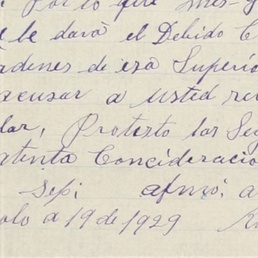 Por lo que
se le dará el Debido C
ordenes de esa Superio
acusar a usted re
lar, Protesto las Seg
atenta Concideracio
Sepi afmo: a
olo a 19 de 1929